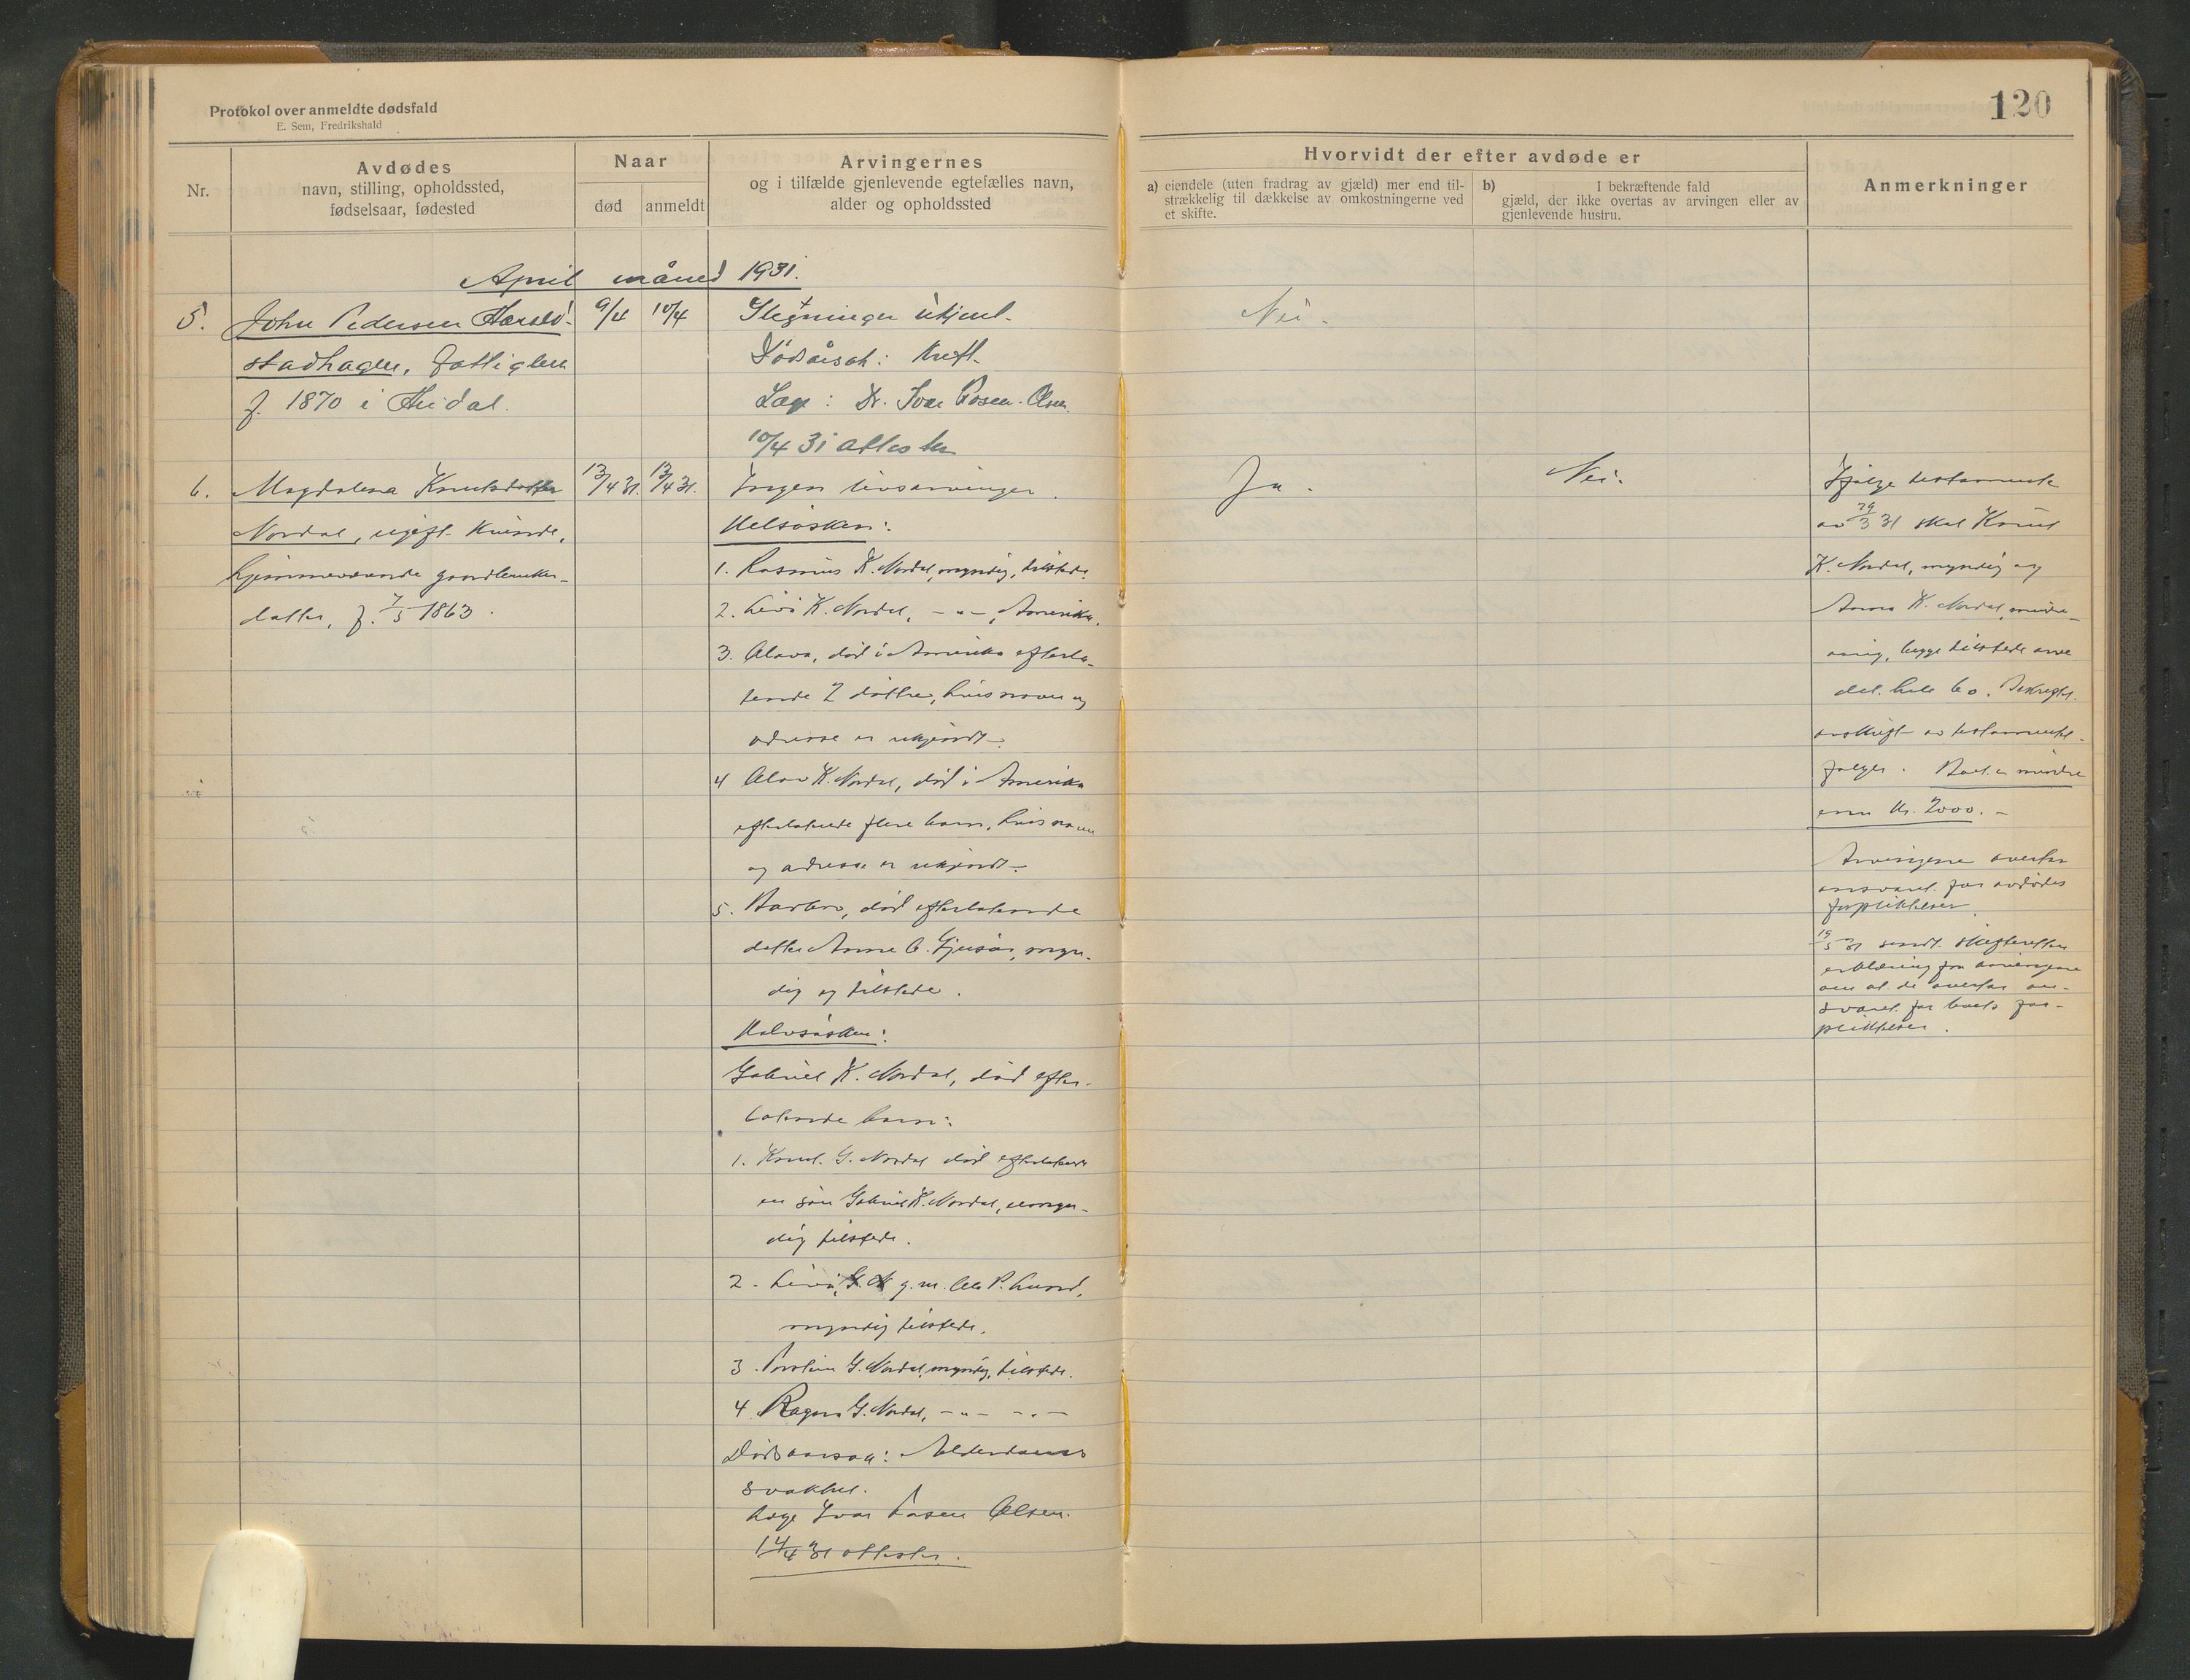 Protokol over anmeldte dødsfald
E. Sem, Fredrikshald
120
Nr.
Avdødes
navn, stilling, opholdssted,
fødselsaar, fødested
Naar
død
anmeldt
Arvingernes
og i tilfælde gjenlevende egtefælles navn,
alder og opholdssted
Hvorvidt der efter avdøde er
a) eiendele (uten fradrag av gjæld) mer end til-
strækkelig til dækkelse av omkostningerne ved
et skifte.
b) I bekræftende fald
gjæld, der ikke overtas av arvingen eller av
gjenlevende hustru.
Anmerkninger
April måned 1931.
5.
John Pedersen
stadhagen, fattiglem
f. 1870 i Heidal.
9/4
10/4
Slegtninger ukjent.
Dødsårsak: Kreft.
Læge: Dr. Ivar Rosen-Olsen
10/4 31 attester
Nei.
6.
Magdalena Knutsdotter
Nordal, ugift kvinde,
hjemmeværende gardbruker-
datter, f. 7/5 1863.
13/4 31.
13/4 31.
Ingen livsarvinger.
Helsøsken:
1. Rasmus K. Nordal, myndig, tilstede.
2. Livi K. Nordal, - " - , Amerika.
3. Olava, død i Amerika efterla-
tende 2 døttre, hvis navn og
adresse er ukjendt.
4 Olav K. Nordal, død i Amerika
efterlatende flere barn, hvis navn
og adresse er ukjendt.
5. Barbro, død efterlatende
datter Anne O. myn-
dig og tilstede.
Halvsøsken:
Gabriel K. Nordal, død efter-
latende barn:
1. Knut G. Nordal død efterlatende
en søn Gabriel K. Nordal, umyn-
dig tilstede.
2. Livi, g. m. Ole P. Lund,
myndig tilstede.
3. G. Nordal, myndig, tilstede.
4 Ragna G. Nordal, - " - - " -
Dødsaarsak: Alderdoms
svakhet.
Læge Ivar Rosen Olsen.
14/4 31 attester.
Ja.
Nei.
Ifølge testamente
av 29/3 31 skal Knut
K. Nordal, myndig og
Anna K. Nordal, mindre-
aarig, begge tilstede arve
det hele bo. Bekræftet
avskrift av testamentet
følger. Boet er mindre
enn kr. 2000. -
Arvingene overtar
ansvaret for avdødes
forpliktelser.
19/5 31 sendt skifteretten
erklæring fra arvingene
om at de overtar an-
svaret for boets for-
pliktelser.